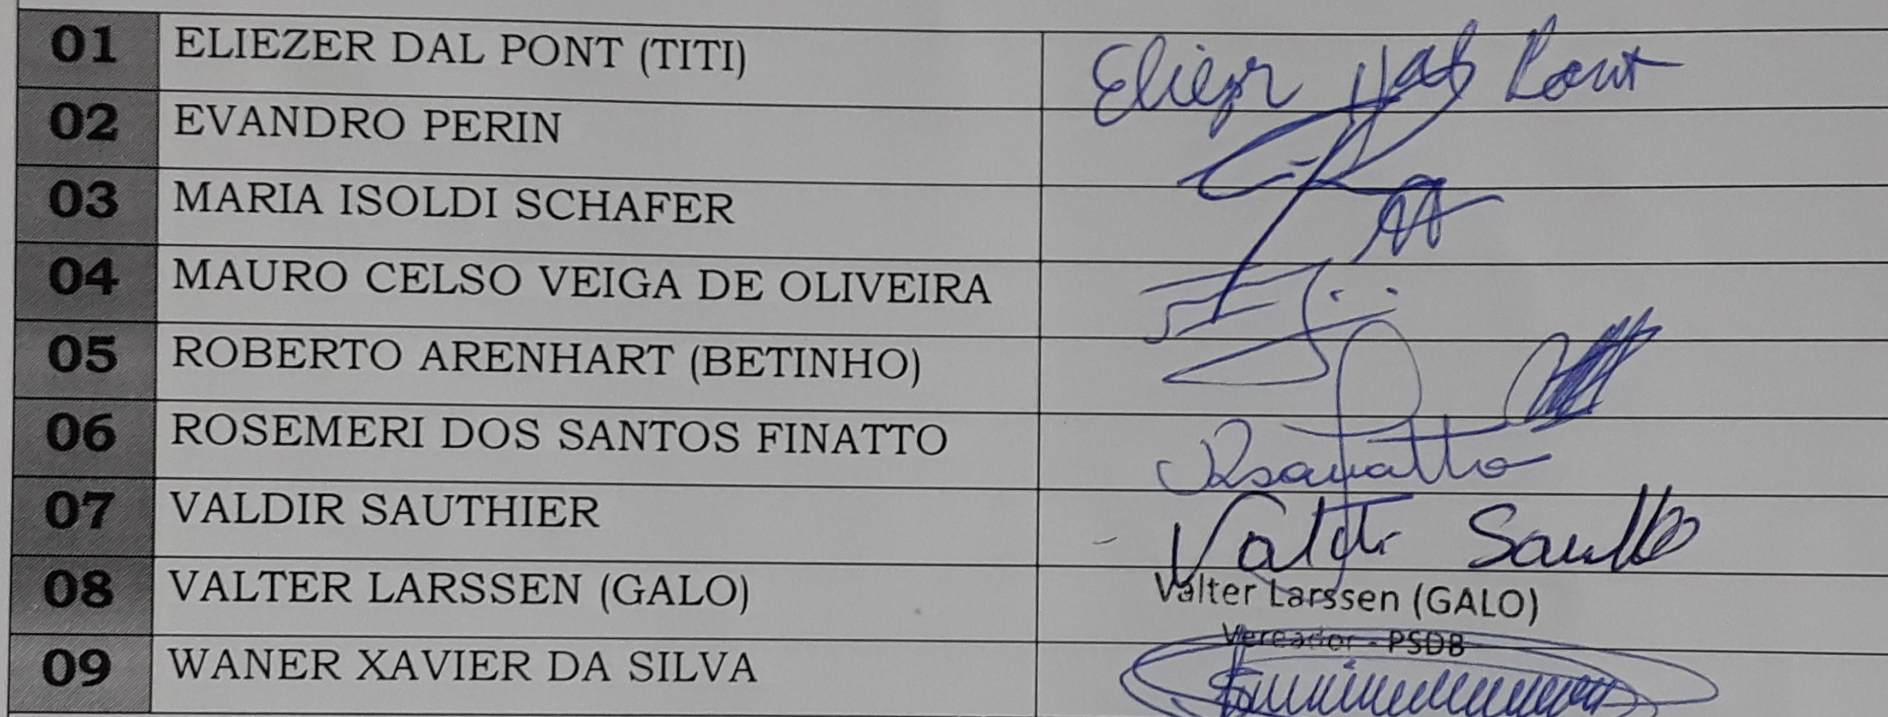 01 ELIEZER DAL PONT (TITI) Eliezer Dal Pont
02 EVANDRO PERIN
03 MARIA ISOLDI SCHAFER
04 MAURO CELSO VEIGA DE OLIVEIRA
05 ROBERTO ARENHART (BETINHO)
06 ROSEMERI DOS SANTOS FINATTO
07 VALDIR SAUTHIER Valdir
08 VALTER LARSSEN (GALO) Valter Larssen (GALO)
Vereador - PSDB
09 WANER XAVIER DA SILVA